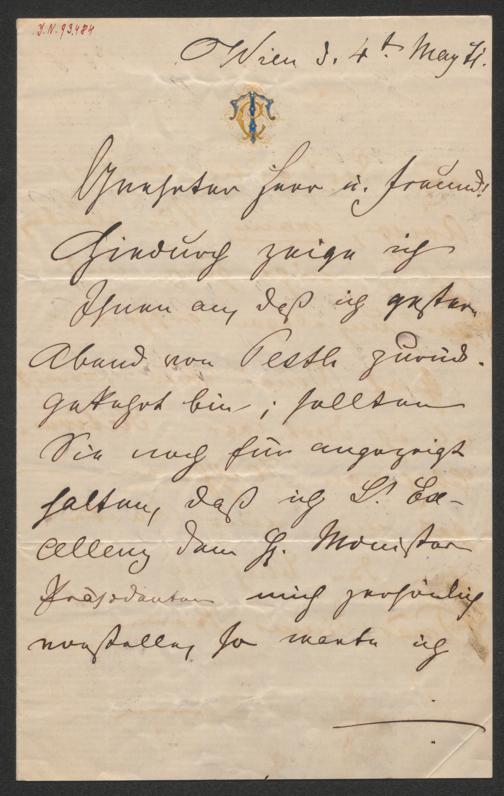 J.N. 93.484
Wien d. 4t May 71.
Geehrter Herr u. Freund!
Hiedurch zeige ich
Ihnen an, daß ich gestern
Abend von Pesth zurück-
gekehrt bin; sollten
Sie noch für angezeigt
halten, daß ich Sr Ex-
cellenz dem H. Minister
Präsidenten mich persönlich
vorstelle, so warte ich